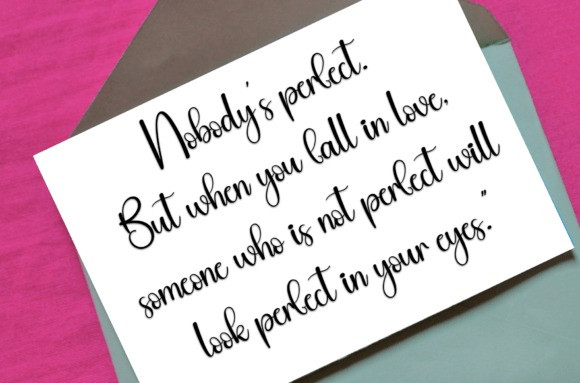 Nobody's perfect.
But when you fall in love,
someone who is not perfect will
look perfect in your eyes."